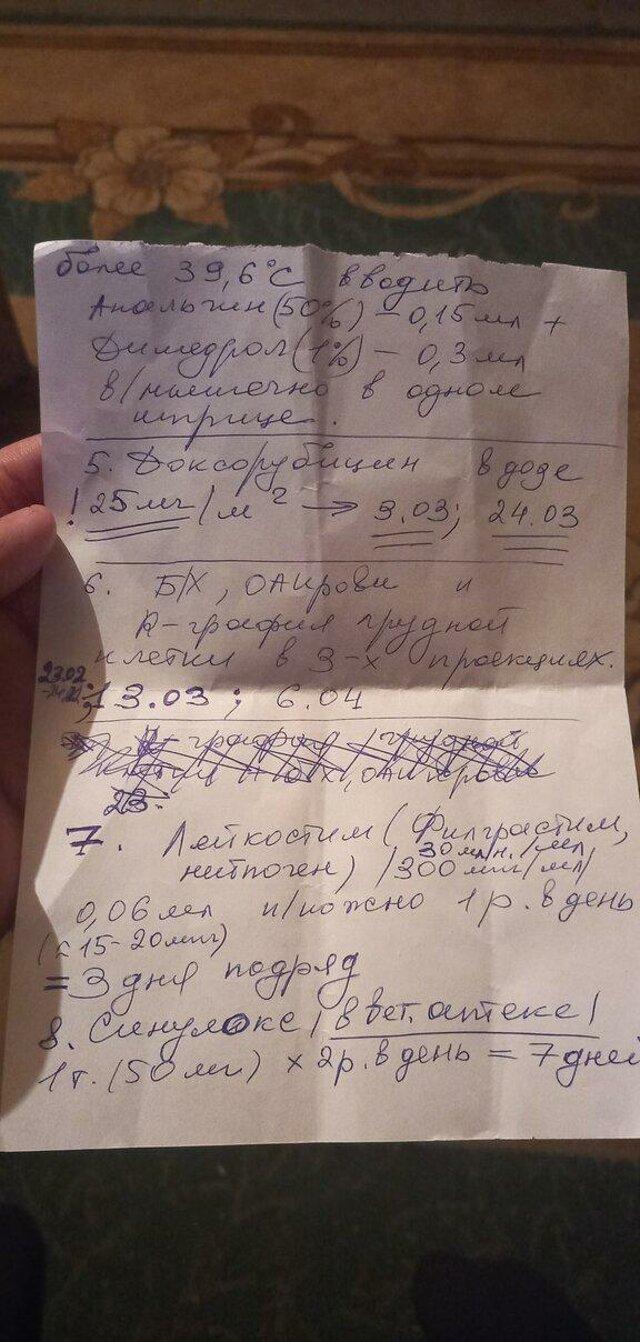 более 39,6°С вводить
Анальгин (50%) – 0,15 мл +
Димедрол (1%) – 0,3 мл
в/мышечно в одном
шприце.
5. Доксорубицин в дозе
! 25 мг/м² → 3.03; 24.03
6. Б/Х, ОАкрови и
R-графия грудной
клетки в 3-х проекциях.
23.02
; 13.03; 6.04
R-графия грудной
клетки, ОАкрови
23.
7. Лейкостим (Филграстим,
30 млн./мл
нейпоген) /300 мкг/мл/
0,06 мл п/кожно 1 р. в день
(≈ 15-20 мкг)
= 3 дня подряд
8. Синулокс / в вет. аптеке /
1 т. (50 мг) × 2 р. в день = 7 дней